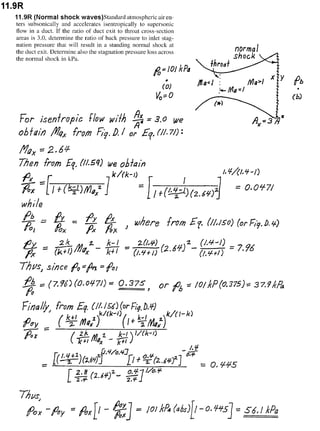 11.9R
11.9R (Normal shock waves) Standard atmospheric air en-
ters subsonically and accelerates isentropically to supersonic
flow in a duct. If the ratio of duct exit to throat cross-section
areas is 3.0, determine the ratio of back pressure to inlet stag-
nation pressure that will result in a standing normal shock at
the duct exit. Determine also the stagnation pressure loss across
the normal shock in kPa.
normal
shock
throat
p₀ = 101 kPa
Ma<1
Ma>1
x
y
p_b
(o)
V₀=0
Ma=1
(b)
(*)
A_x = 3A*
For isentropic flow with A_x/A* = 3.0 we
obtain Ma_x from Fig. D.1 or Eq. (11.71):
Ma_x = 2.64
Then from Eq. (11.59) we obtain
p_x/p_ox = [1/(1+((k-1)/2)Ma_x²)]^(k/(k-1)) = [1/(1+((1.4-1)/2)(2.64)²)]^(1.4/(1.4-1)) = 0.0471
while
p_b/p_o1 = p_y/p_ox = (p_y/p_x)(p_x/p_ox), where from Eq. (11.150) (or Fig. D.4)
p_y/p_x = (2k/(k+1))Ma_x² - (k-1)/(k+1) = (2(1.4)/(1.4+1))(2.64)² - (1.4-1)/(1.4+1) = 7.96
Thus, since p₀ = p_ox = p_o1
p_b/p₀ = (7.96)(0.0471) = 0.375, or p_b = 101 kPa(0.375) = 37.9 kPa
Finally, from Eq. (11.156) (or Fig. D.4)
p_oy/p_ox = ((k+1)/2 Ma_x²)^(k/(k-1)) (1+(k-1)/2 Ma_x²)^(k/(1-k)) / (2k/(k+1) Ma_x² - (k-1)/(k+1))^(1/(k-1))
= [((1.4+1)/2)(2.64)²]^(1.4/0.4) [1+(0.4/2)(2.64)²]^(-1.4/0.4) / [(2.8/2.4)(2.64)² - 0.4/2.4]^(1/0.4) = 0.445
Thus,
p_ox - p_oy = p_ox[1 - p_oy/p_ox] = 101 kPa (abs)[1-0.445] = 56.1 kPa